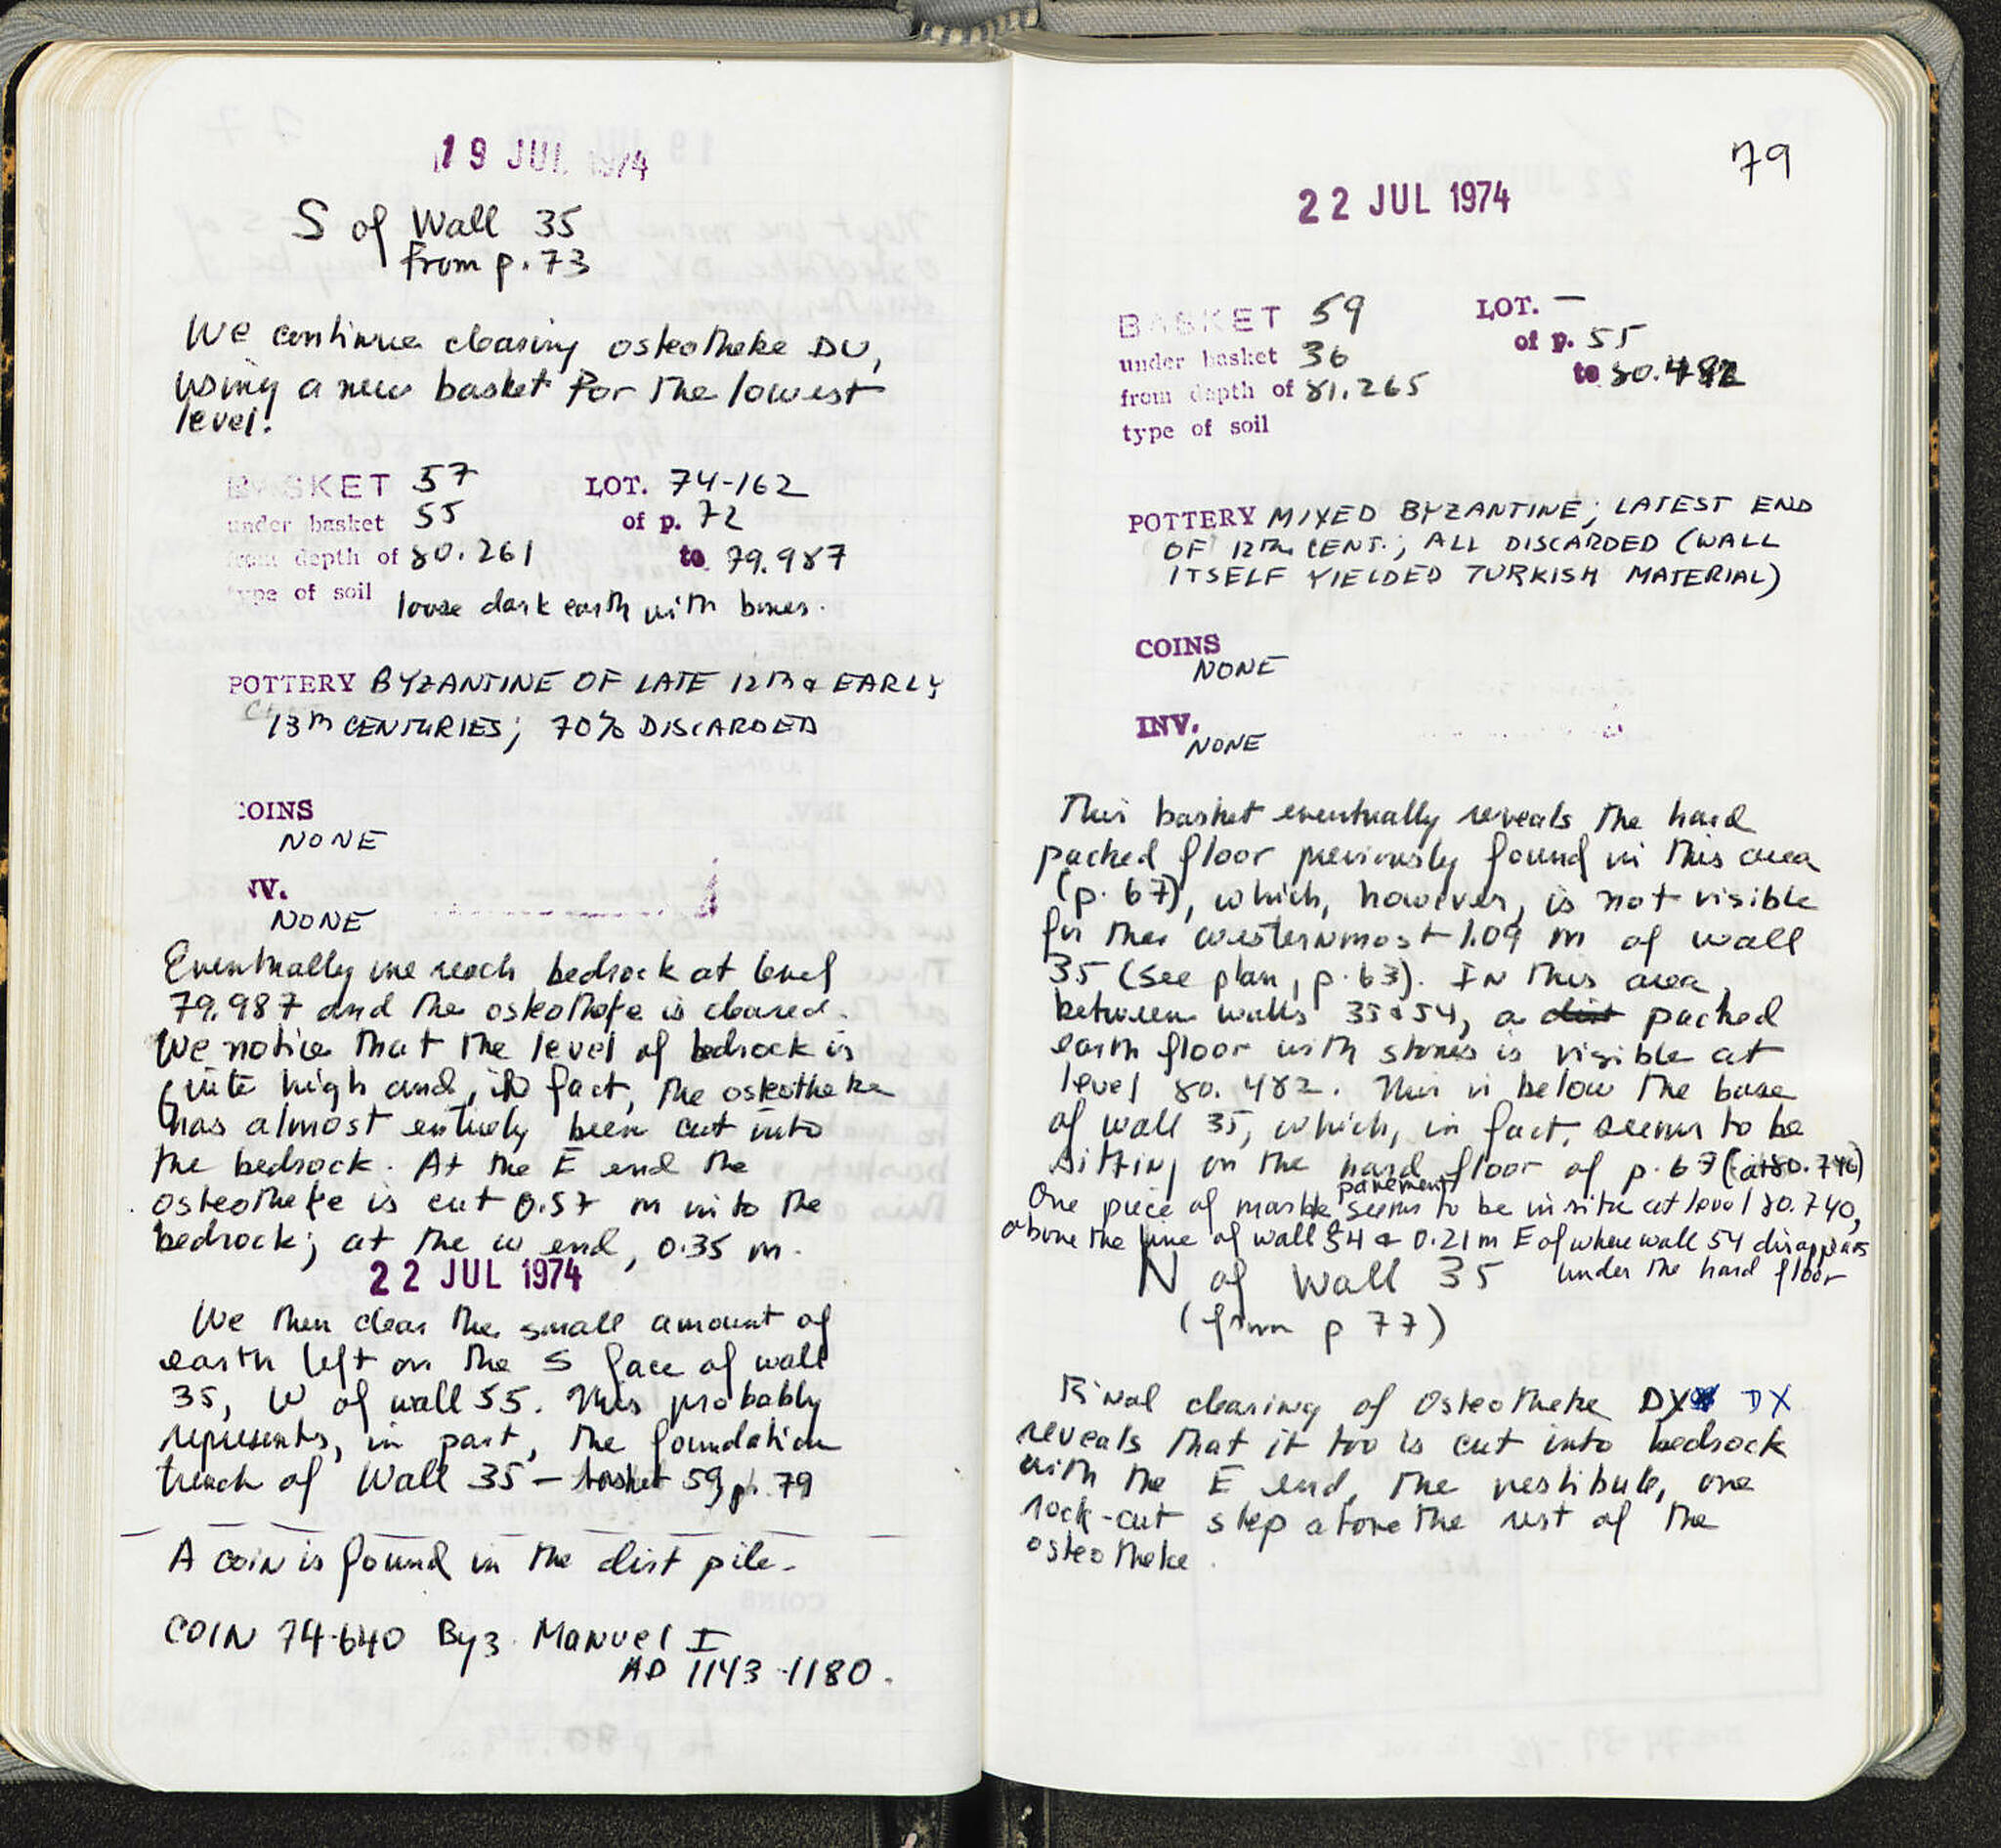 19 JUL 1974
S of Wall 35
from p. 73
We continue clearing osteotheke DU,
using a new basket for the lowest
level.
BASKET 57 LOT. 74-162
under basket 55 of p. 72
from depth of 80.261 to 79.987
type of soil loose dark earth with bones.
POTTERY BYZANTINE OF LATE 12TH & EARLY
13TH CENTURIES; 70% DISCARDED
COINS
NONE
INV.
NONE
Eventually we reach bedrock at level
79.987 and the osteotheke is cleared.
We notice that the level of bedrock is
quite high and, in fact, the osteotheke
has almost entirely been cut into
the bedrock. At the E end the
osteotheke is cut 0.57 m into the
bedrock; at the W end, 0.35 m.
22 JUL 1974
We then clear the small amount of
earth left on the S face of wall
35, W of wall 55. This probably
represents, in part, the foundation
trench of Wall 35 – basket 59, p. 79
A coin is found in the dirt pile.
COIN 74-640 Byz. Manuel I
AD 1143-1180.
79
22 JUL 1974
BASKET 59 LOT. —
under basket 36 of p. 55
from depth of 81.265 to 80.482
type of soil
POTTERY MIXED BYZANTINE; LATEST END
OF 12TH CENT.; ALL DISCARDED (WALL
ITSELF YIELDED TURKISH MATERIAL)
COINS
NONE
INV.
NONE
This basket eventually reveals the hard
packed floor previously found in this area
(p. 67), which, however, is not visible
for the westernmost 1.09 m of wall
35 (see plan, p. 63). In this area,
between walls 35 & 54, a dirt packed
earth floor with stones is visible at
level 80.482. This is below the base
of wall 35, which, in fact, seems to be
sitting on the hard floor of p. 67 (at 80.746)
One piece of marble pavement seems to be in situ at level 80.740,
above the line of wall 54 & 0.21 m E of where wall 54 disappears
under the hard floor
N of Wall 35
(from p 77)
Final clearing of Osteotheke DX DX
reveals that it too is cut into bedrock
with the E end, the vestibule, one
rock-cut step above the rest of the
osteotheke.